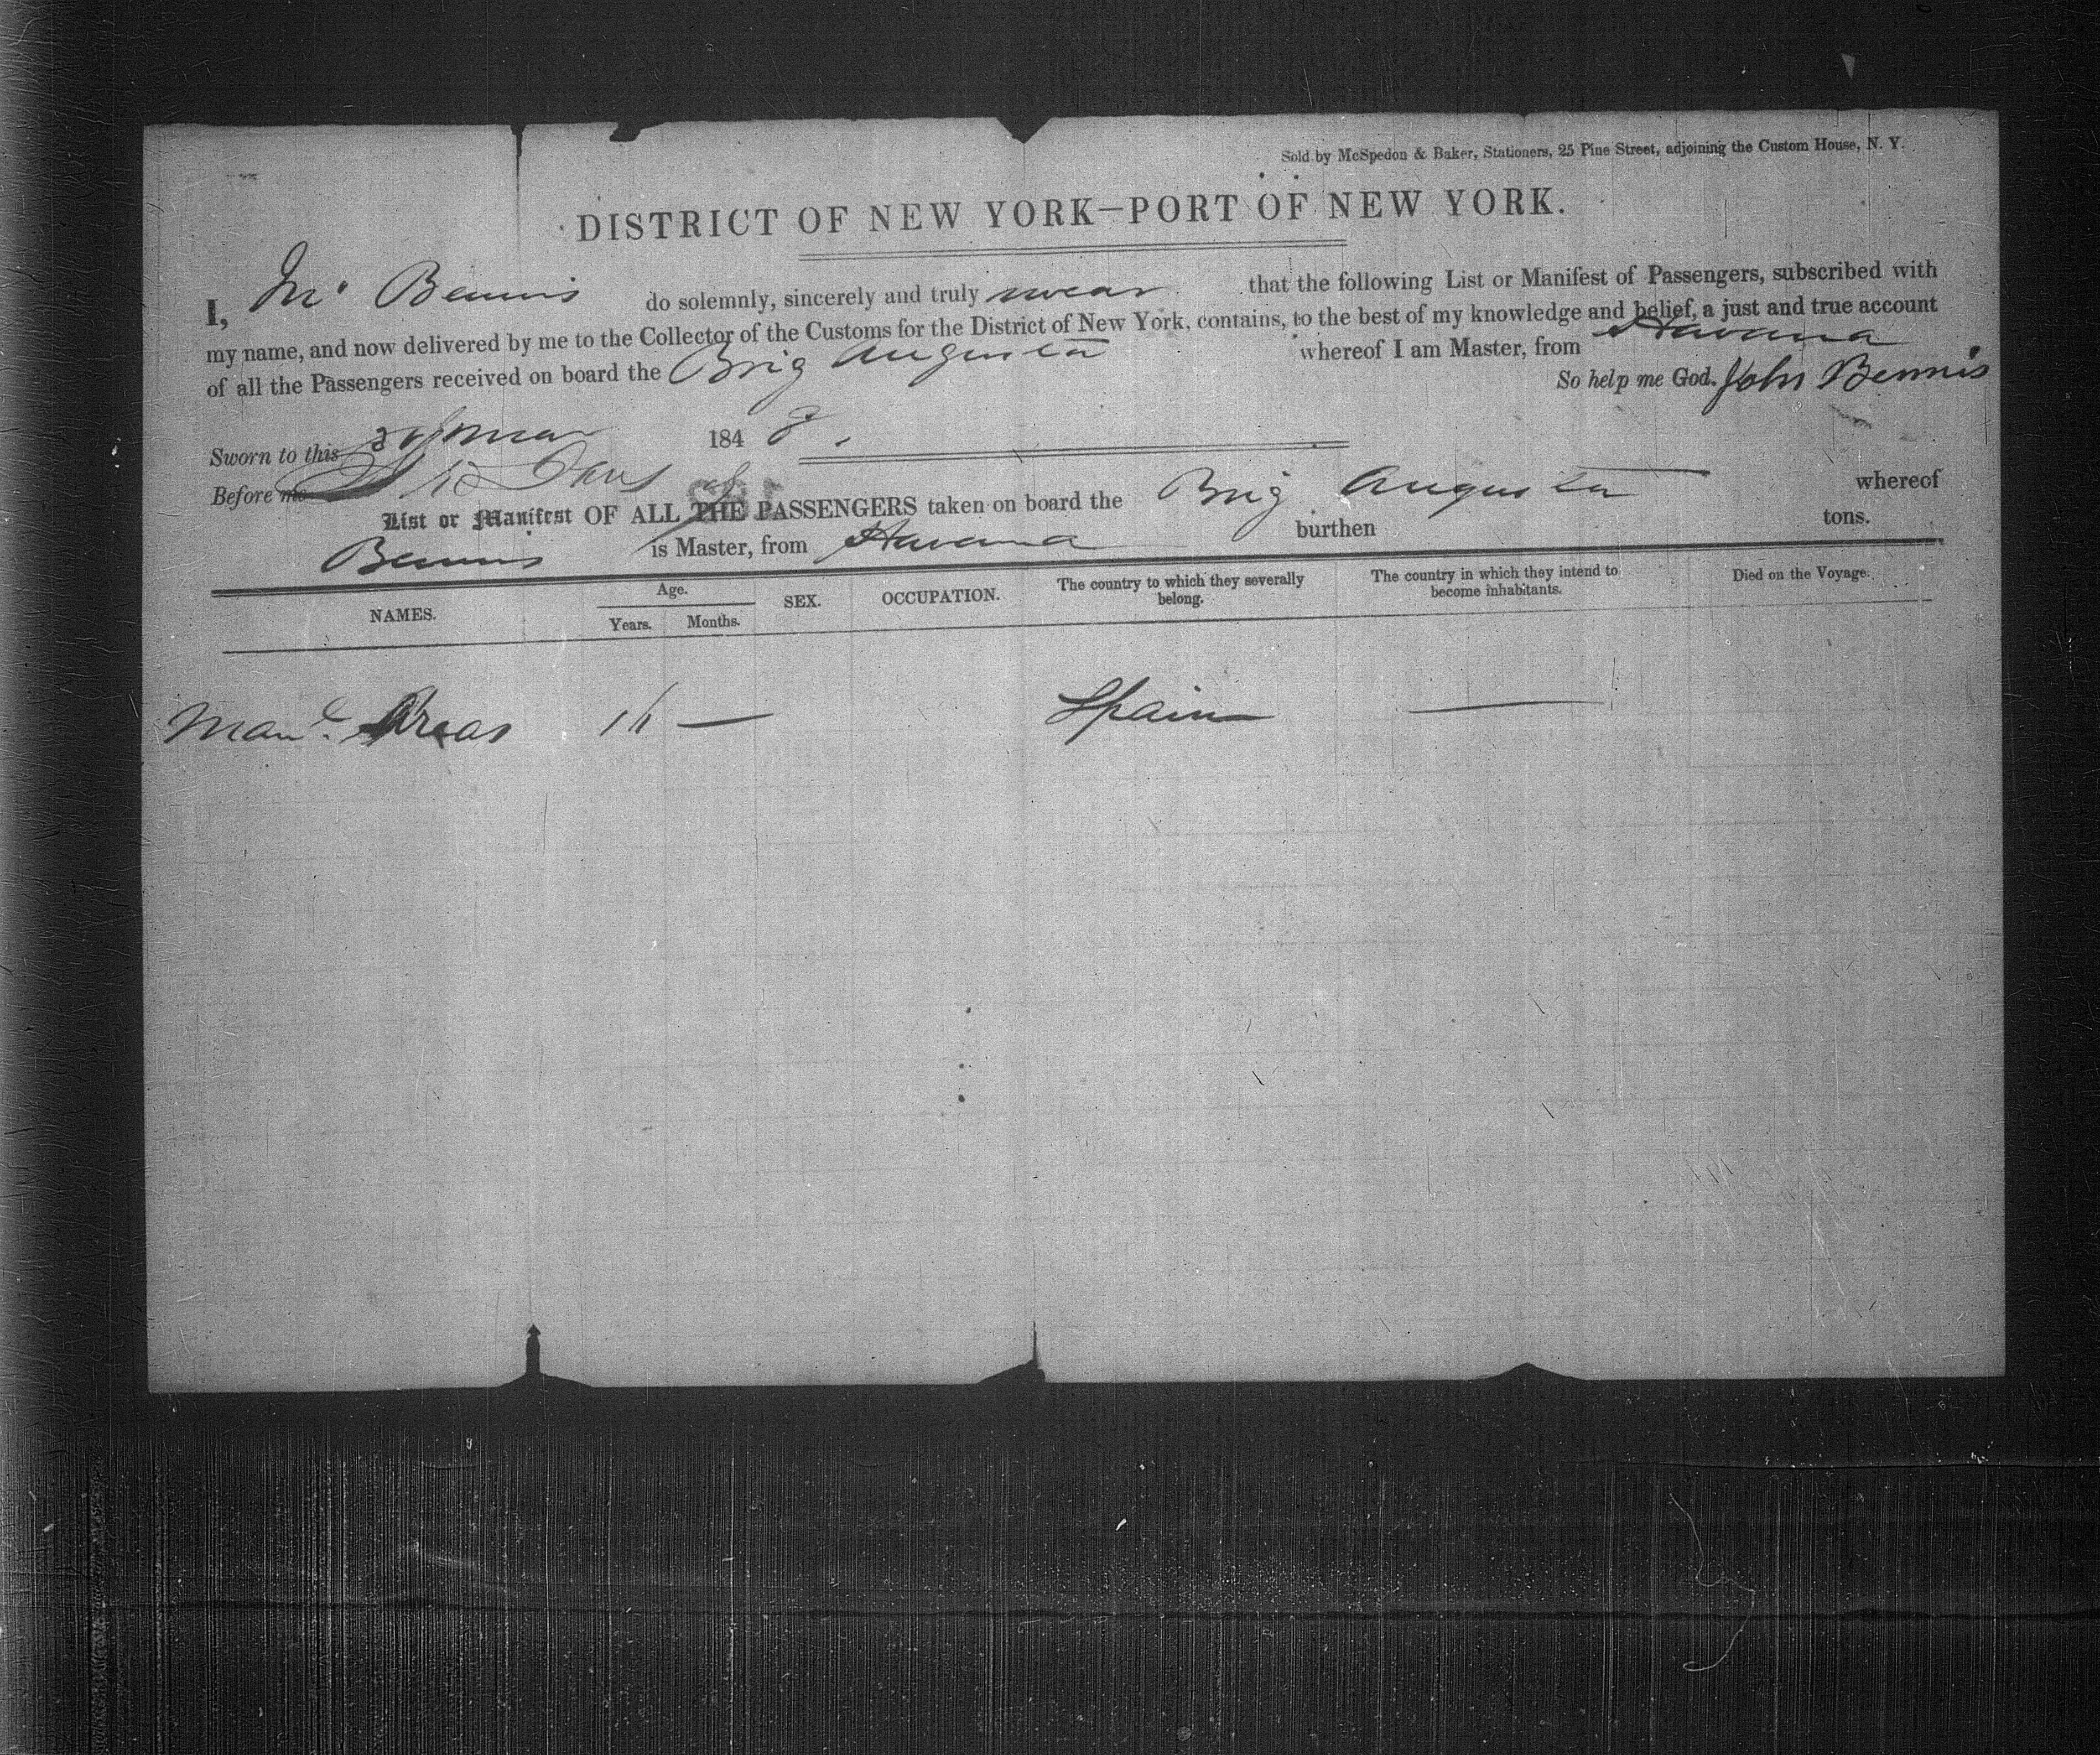 Sold by McSpedon & Baker, Stationers, 25 Pine Street, adjoining the Custom House, N. Y.
DISTRICT OF NEW YORK—PORT OF NEW YORK.
I, Mr Bennis do solemnly, sincerely and truly swear that the following List or Manifest of Passengers, subscribed with
my name, and now delivered by me to the Collector of the Customs for the District of New York, contains, to the best of my knowledge and belief, a just and true account
of all the Passengers received on board the Brig Augusta whereof I am Master, from Havana
So help me God. John Bennis
Sworn to this 184 8.
Before me
List or Manifest OF ALL THE PASSENGERS taken on board the Brig Augusta whereof
Bennis is Master, from Havana burthen tons.
NAMES. Age. Years. Months. SEX. OCCUPATION. The country to which they severally belong. The country in which they intend to become inhabitants. Died on the Voyage.
Manl. Areas 16 — Spain —